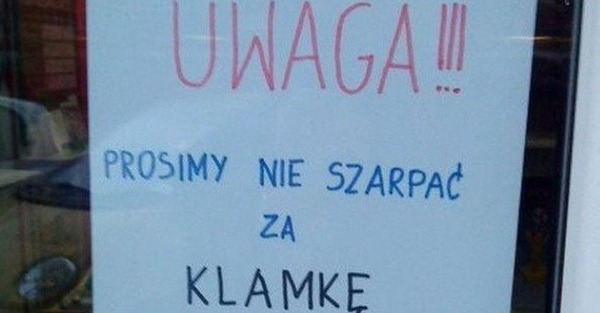 UWAGA!!!
PROSIMY NIE SZARPAĆ
ZA
KLAMKĘ